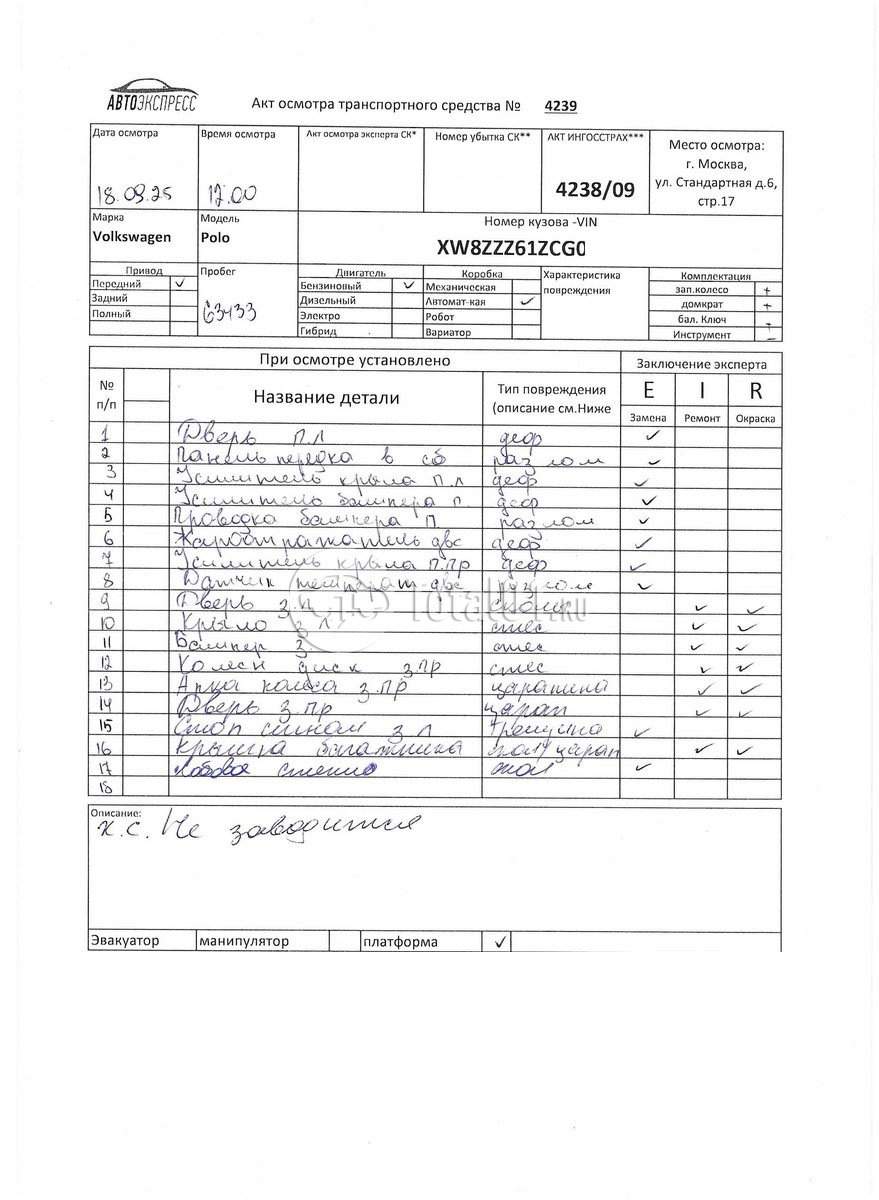 АВТОЭКСПРЕСС
Акт осмотра транспортного средства № 4239
Дата осмотра Время осмотра Акт осмотра эксперта СК* Номер убытка СК** АКТ ИНГОССТРАХ*** Место осмотра:
г. Москва,
ул. Стандартная д.6,
стр.17
18.09.25 12.00 4238/09
Марка Модель Номер кузова -VIN
Volkswagen Polo XW8ZZZ61ZCG0
Привод Пробег Двигатель Коробка Характеристика повреждения Комплектация
Передний ✓ Бензиновый ✓ Механическая зап.колесо +
Задний Дизельный Автомат-кая ✓ домкрат +
Полный 63433 Электро Робот бал. Ключ +
Гибрид Вариатор Инструмент –
При осмотре установлено Заключение эксперта
№ п/п Название детали Тип повреждения (описание см.Ниже E I R
Замена Ремонт Окраска
1 Дверь п.л деф ✓
2 Панель передка в сб разлом ✓
3 Усилитель крыла п.л деф ✓
4 Усилитель бампера п. деф ✓
5 Проводка бампера п разлом ✓
6 деф ✓
7 Усилитель крыла п.пр деф ✓
8 Датчик температ двс разлом ✓
9 Дверь з.л ✓ ✓
10 Крыло з л стес ✓ ✓
11 Бампер з стес ✓ ✓
12 Колесн диск з.пр стес ✓ ✓
13 Арка колеса з.пр царапина ✓ ✓
14 Дверь з.пр царап ✓ ✓
15 Стоп сигнал з л трещина ✓
16 Крышка багажника скол/царап ✓ ✓
17 Лобовое стекло скол ✓
18
Описание:
х.с. Не заводится
Эвакуатор манипулятор платформа ✓
Total01.RU